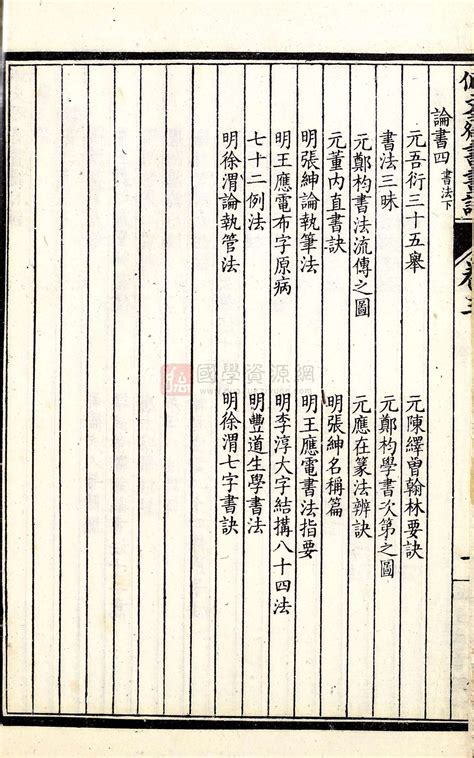 論書四 書法下
元吾衍三十五舉 元陳繹曾翰林要訣
書法三昧 元鄭杓學書次第之圖
元鄭杓書法流傳之圖 元應在篆法辨訣
元董内直書訣 明張紳名稱篇
明張紳論執筆法 明王應電書法指要
明王應電布字原病 明李淳大字結搆八十四法
七十二例法 明豐道生學書法
明徐渭論執管法 明徐渭七字書訣
一
國學資源網